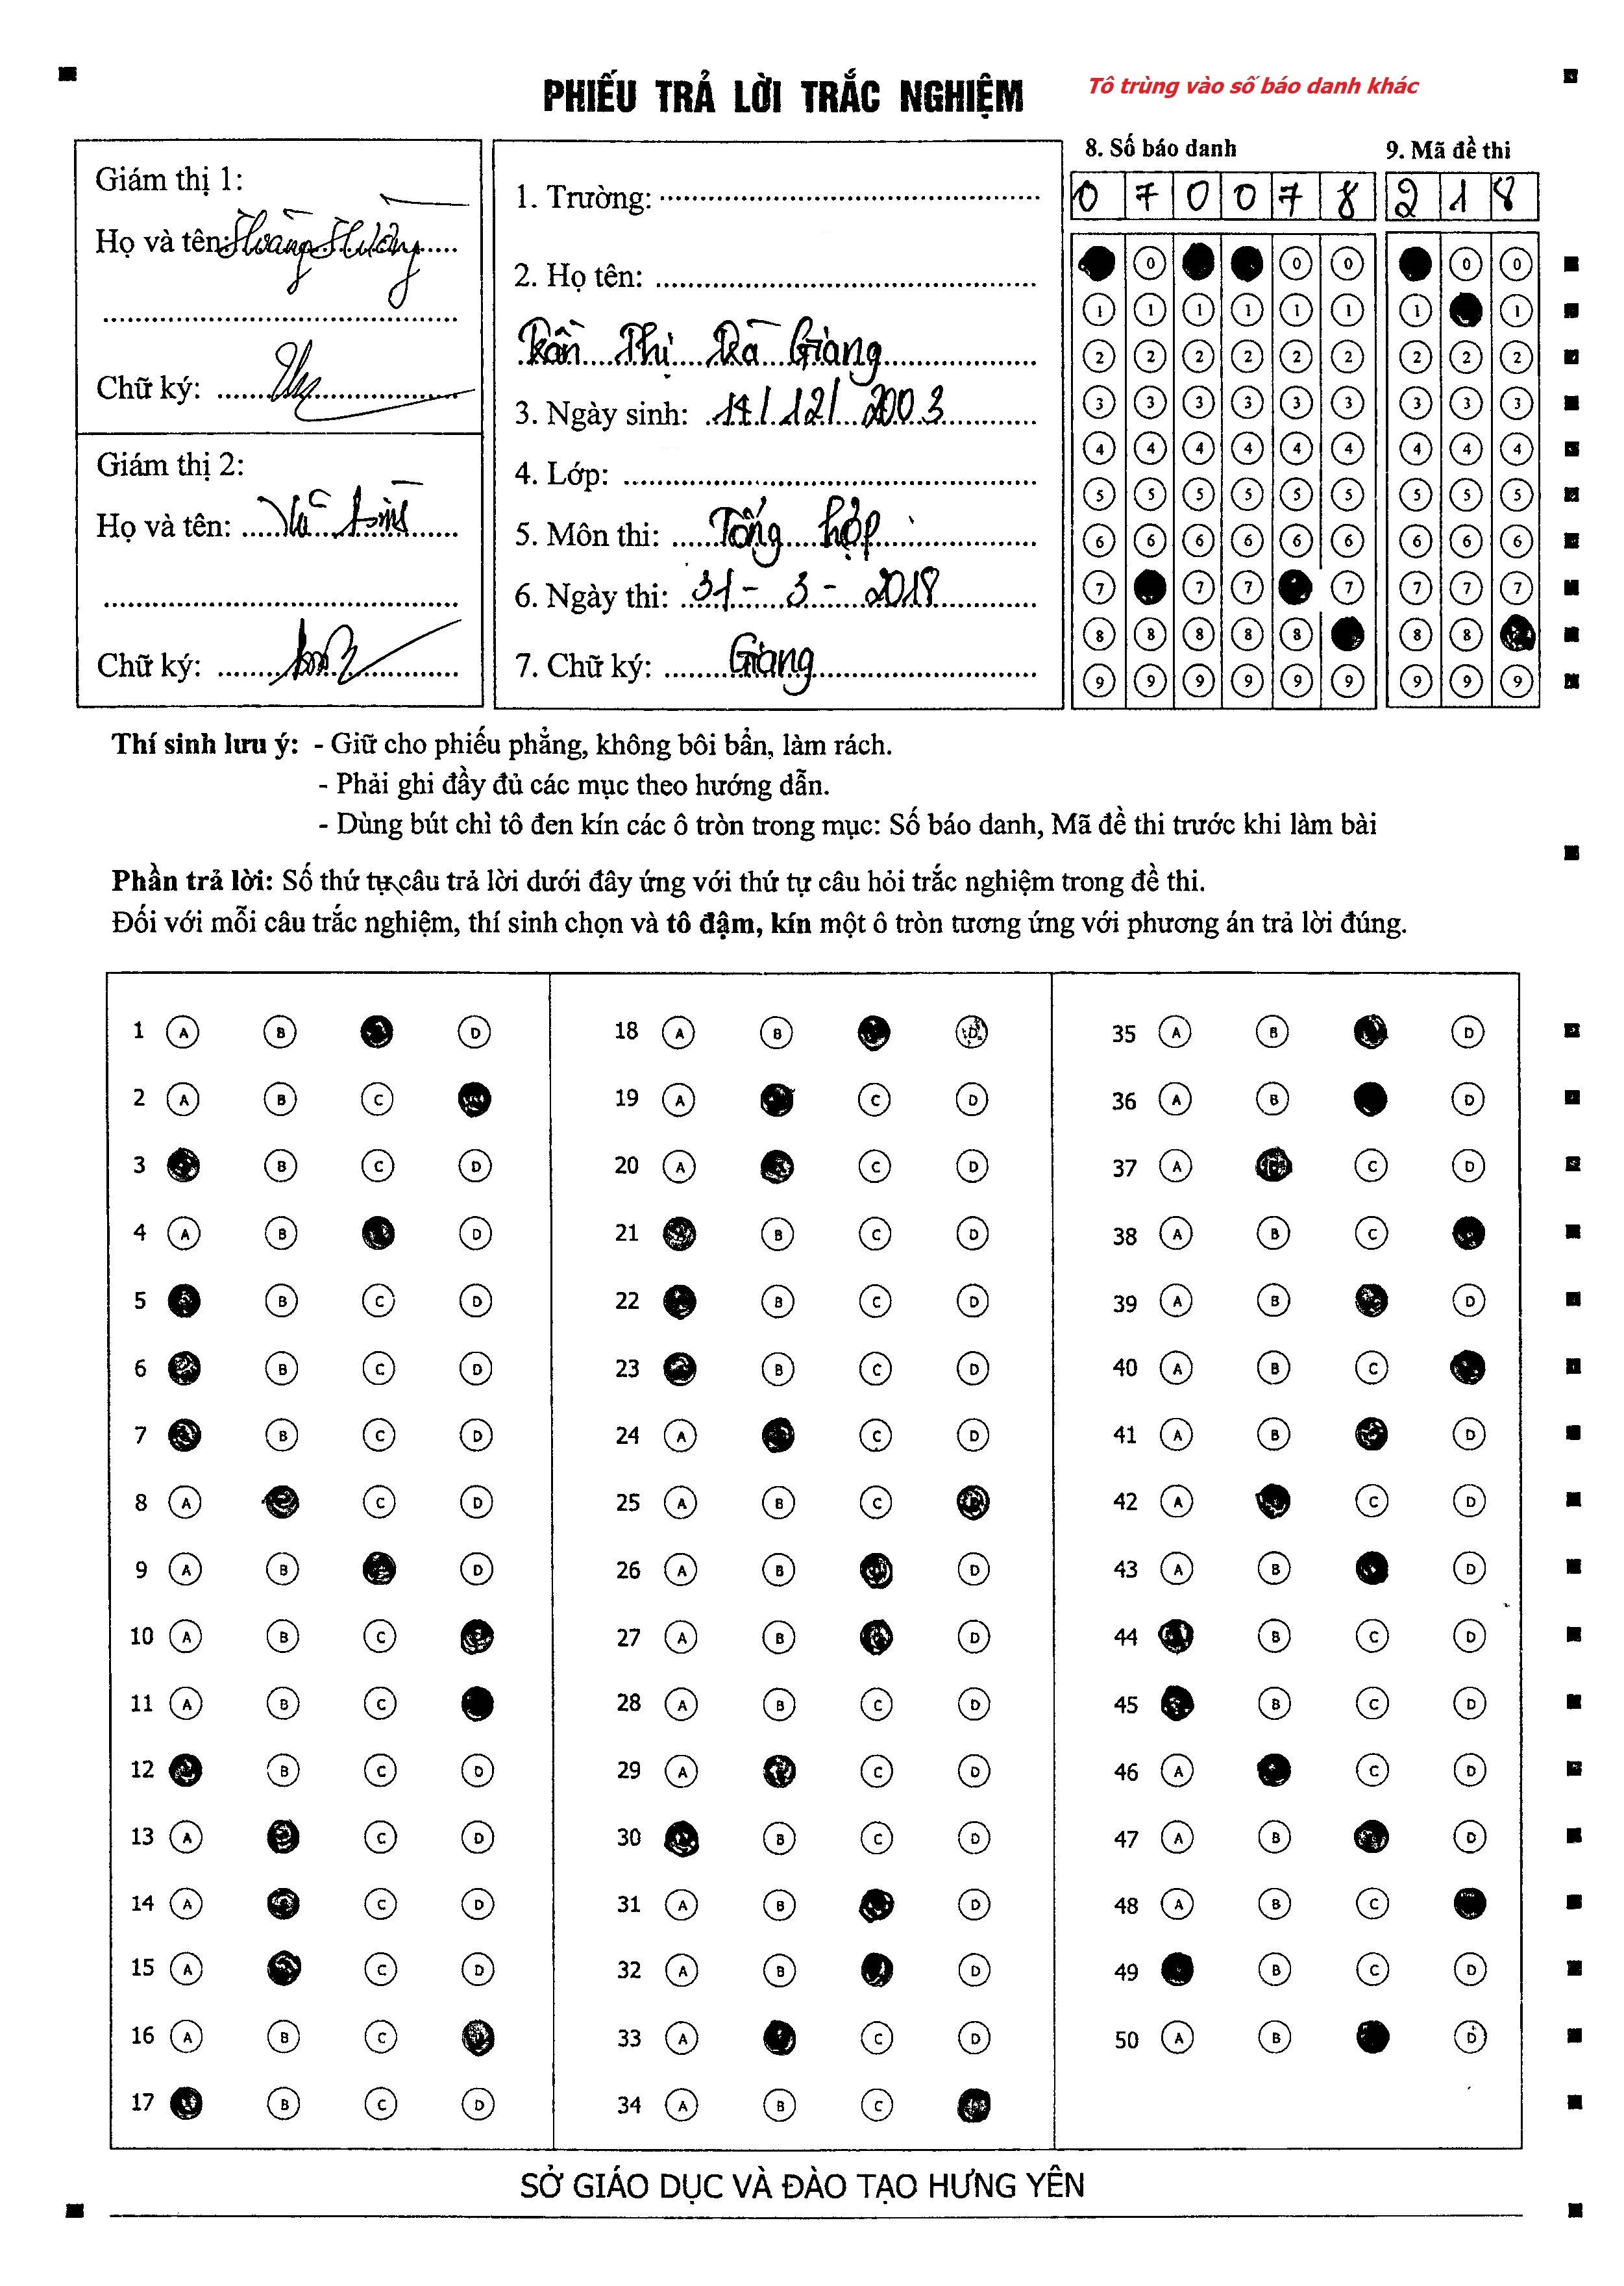 PHIẾU TRẢ LỜI TRẮC NGHIỆM
Tô trùng vào số báo danh khác
Giám thị 1:
Họ và tên:
Chữ ký:
Giám thị 2:
Họ và tên:
Chữ ký:
1. Trường:
2. Họ tên:
Trần Thị Trà Giang
3. Ngày sinh: 14/12/2003
4. Lớp:
5. Môn thi: Tổng hợp
6. Ngày thi: 31-3-2018
7. Chữ ký: Giang
8. Số báo danh 9. Mã đề thi
0 7 0 0 7 8 2 1 8
0 0 0 0 0
1 1 1 1 1 1 1 1
2 2 2 2 2 2 2 2 2
3 3 3 3 3 3 3 3 3
4 4 4 4 4 4 4 4 4
5 5 5 5 5 5 5 5 5
6 6 6 6 6 6 6 6 6
7 7 7 7 7 7 7
8 8 8 8 8 8 8
9 9 9 9 9 9 9 9 9
Thí sinh lưu ý: - Giữ cho phiếu phẳng, không bôi bẩn, làm rách.
- Phải ghi đầy đủ các mục theo hướng dẫn.
- Dùng bút chì tô đen kín các ô tròn trong mục: Số báo danh, Mã đề thi trước khi làm bài
Phần trả lời: Số thứ tự câu trả lời dưới đây ứng với thứ tự câu hỏi trắc nghiệm trong đề thi.
Đối với mỗi câu trắc nghiệm, thí sinh chọn và tô đậm, kín một ô tròn tương ứng với phương án trả lời đúng.
1 A B D
2 A B C
3 B C D
4 A B D
5 B C D
6 B C D
7 B C D
8 A C D
9 A B D
10 A B C
11 A B C
12 B C D
13 A C D
14 A C D
15 A C D
16 A B C
17 B C D
18 A B D
19 A C D
20 A C D
21 B C D
22 B C D
23 B C D
24 A C D
25 A B C
26 A B D
27 A B D
28 A B C D
29 A C D
30 B C D
31 A B D
32 A B D
33 A C D
34 A B C
35 A B D
36 A B D
37 A C D
38 A B C
39 A B D
40 A B C
41 A B D
42 A C D
43 A B D
44 B C D
45 B C D
46 A C D
47 A B D
48 A B C
49 B C D
50 A B D
SỞ GIÁO DỤC VÀ ĐÀO TẠO HƯNG YÊN